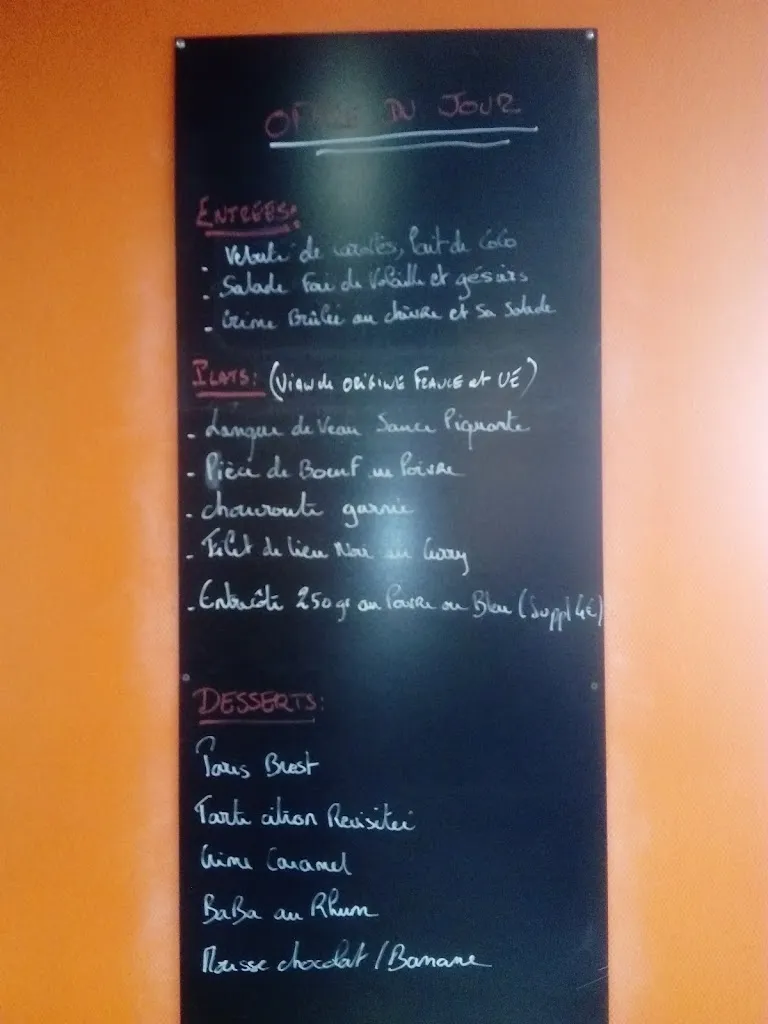 OFFRE DU JOUR
ENTREES:
- Velouté de carottes, lait de CoCo
- Salade Foie de Volaille et gésiers
- Crème Brûlée au chèvre et Sa Salade
PLATS: (Viande ORIGINE FRANCE et UE)
- Langue de Veau Sauce Piquante
- Pièce de Boeuf au Poivre
- choucroute garnie
- Filet de lieu Noir au Curry
- Entrecôte 250gr au Poivre ou Bleu (Suppl 4€)
DESSERTS:
Paris Brest
Tarte citron Revisitée
Crème Caramel
BaBa au Rhum
Mousse chocolat / Banane